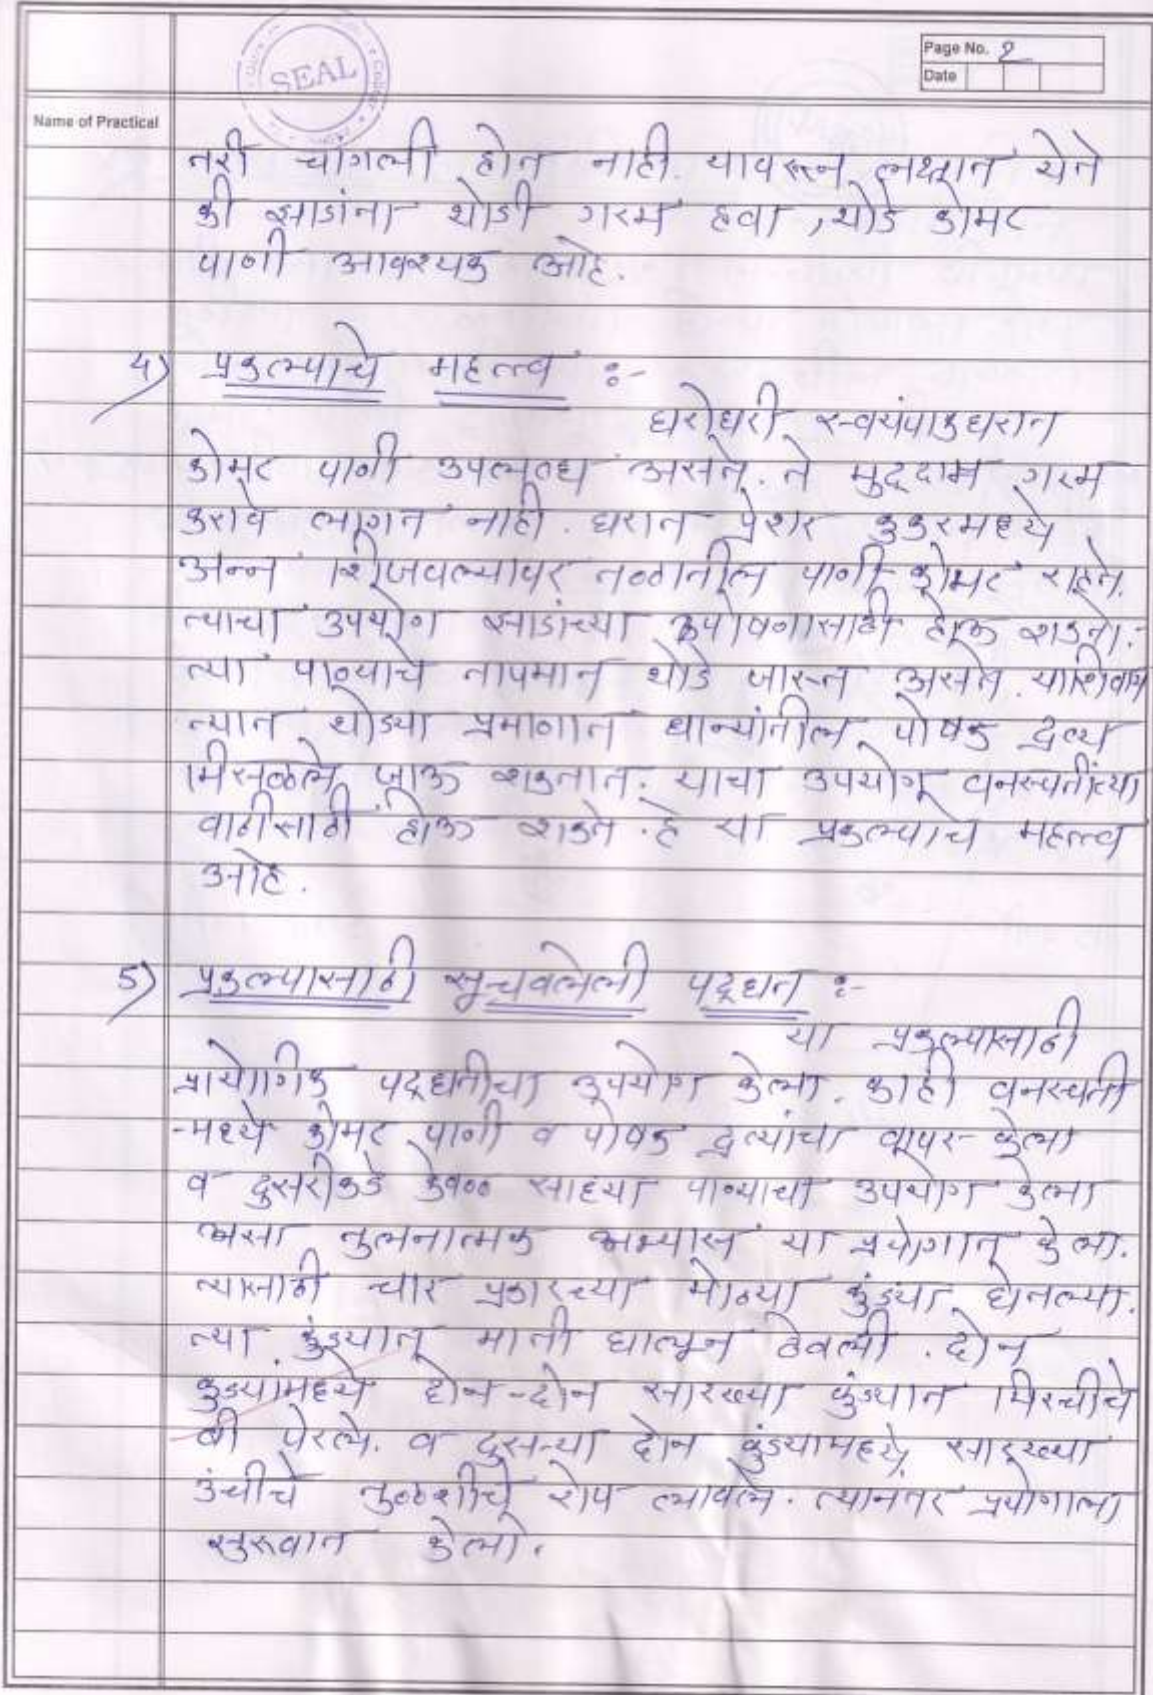 SEAL
Page No. 2
Date
Name of Practical
तरी चांगली होत नाही. यावरून लक्षात येते
की झाडांना थोडी गरम हवा, थोडे कोमट
पाणी आवश्यक आहे.
4) प्रकल्पाचे महत्त्व :-
घरोघरी स्वयंपाकघरात
कोमट पाणी उपलब्ध असते. ते मुद्दाम गरम
करावे लागत नाही. घरात प्रेशर कुकरमध्ये
अन्न शिजवल्यावर तळातील पाणी कोमट राहते.
त्याचा उपयोग झाडांच्या पोषणासाठी होऊ शकतो.
त्या पाण्याचे तापमान थोडे जास्त असते. याशिवाय
त्यात थोड्या प्रमाणात धान्यांतील पोषक द्रव्य
मिसळले जाऊ शकतात. याचा उपयोग वनस्पतींच्या
वाढीसाठी होऊ शकते. हे या प्रकल्पाचे महत्त्व
आहे.
5) प्रकल्पासाठी सूचवलेली पद्धत :-
या प्रकल्पासाठी
प्रायोगिक पद्धतीचा उपयोग केला. काही वनस्पती
-मध्ये कोमट पाणी व पोषक द्रव्यांचा वापर केला
व दुसरीकडे केवळ साध्या पाण्याचा उपयोग केला
असा तुलनात्मक अभ्यास या प्रयोगात केला.
त्यासाठी चार प्रकारच्या मोठ्या कुंड्या घेतल्या.
त्या कुंड्यात माती घालून ठेवली. दोन
कुंड्यांमध्ये दोन-दोन सारख्या कुंड्यात मिरचीचे
बी पेरले. व दुसऱ्या दोन कुंड्यामध्ये सारख्या
उंचीचे तुळशीचे रोप लावले. त्यानंतर प्रयोगाला
सुरुवात केली.